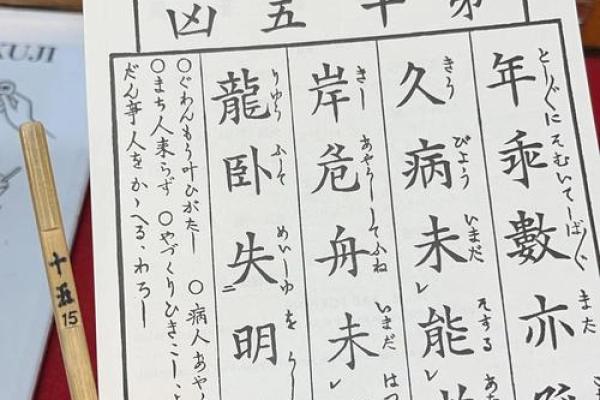 第十五凶
年乖數亦
また
久病未能
きう びよう いまだ そする
岸危舟未
きし あやうしてふね いまだ はつ
龍卧失明
りゆう ふして めいしゆを
○ぐわんもう叶ひがたし ○病人あや
○まち人来らず ○やづくりひきこし
だん事人をかゝへる、わろし
十五
15
UJI